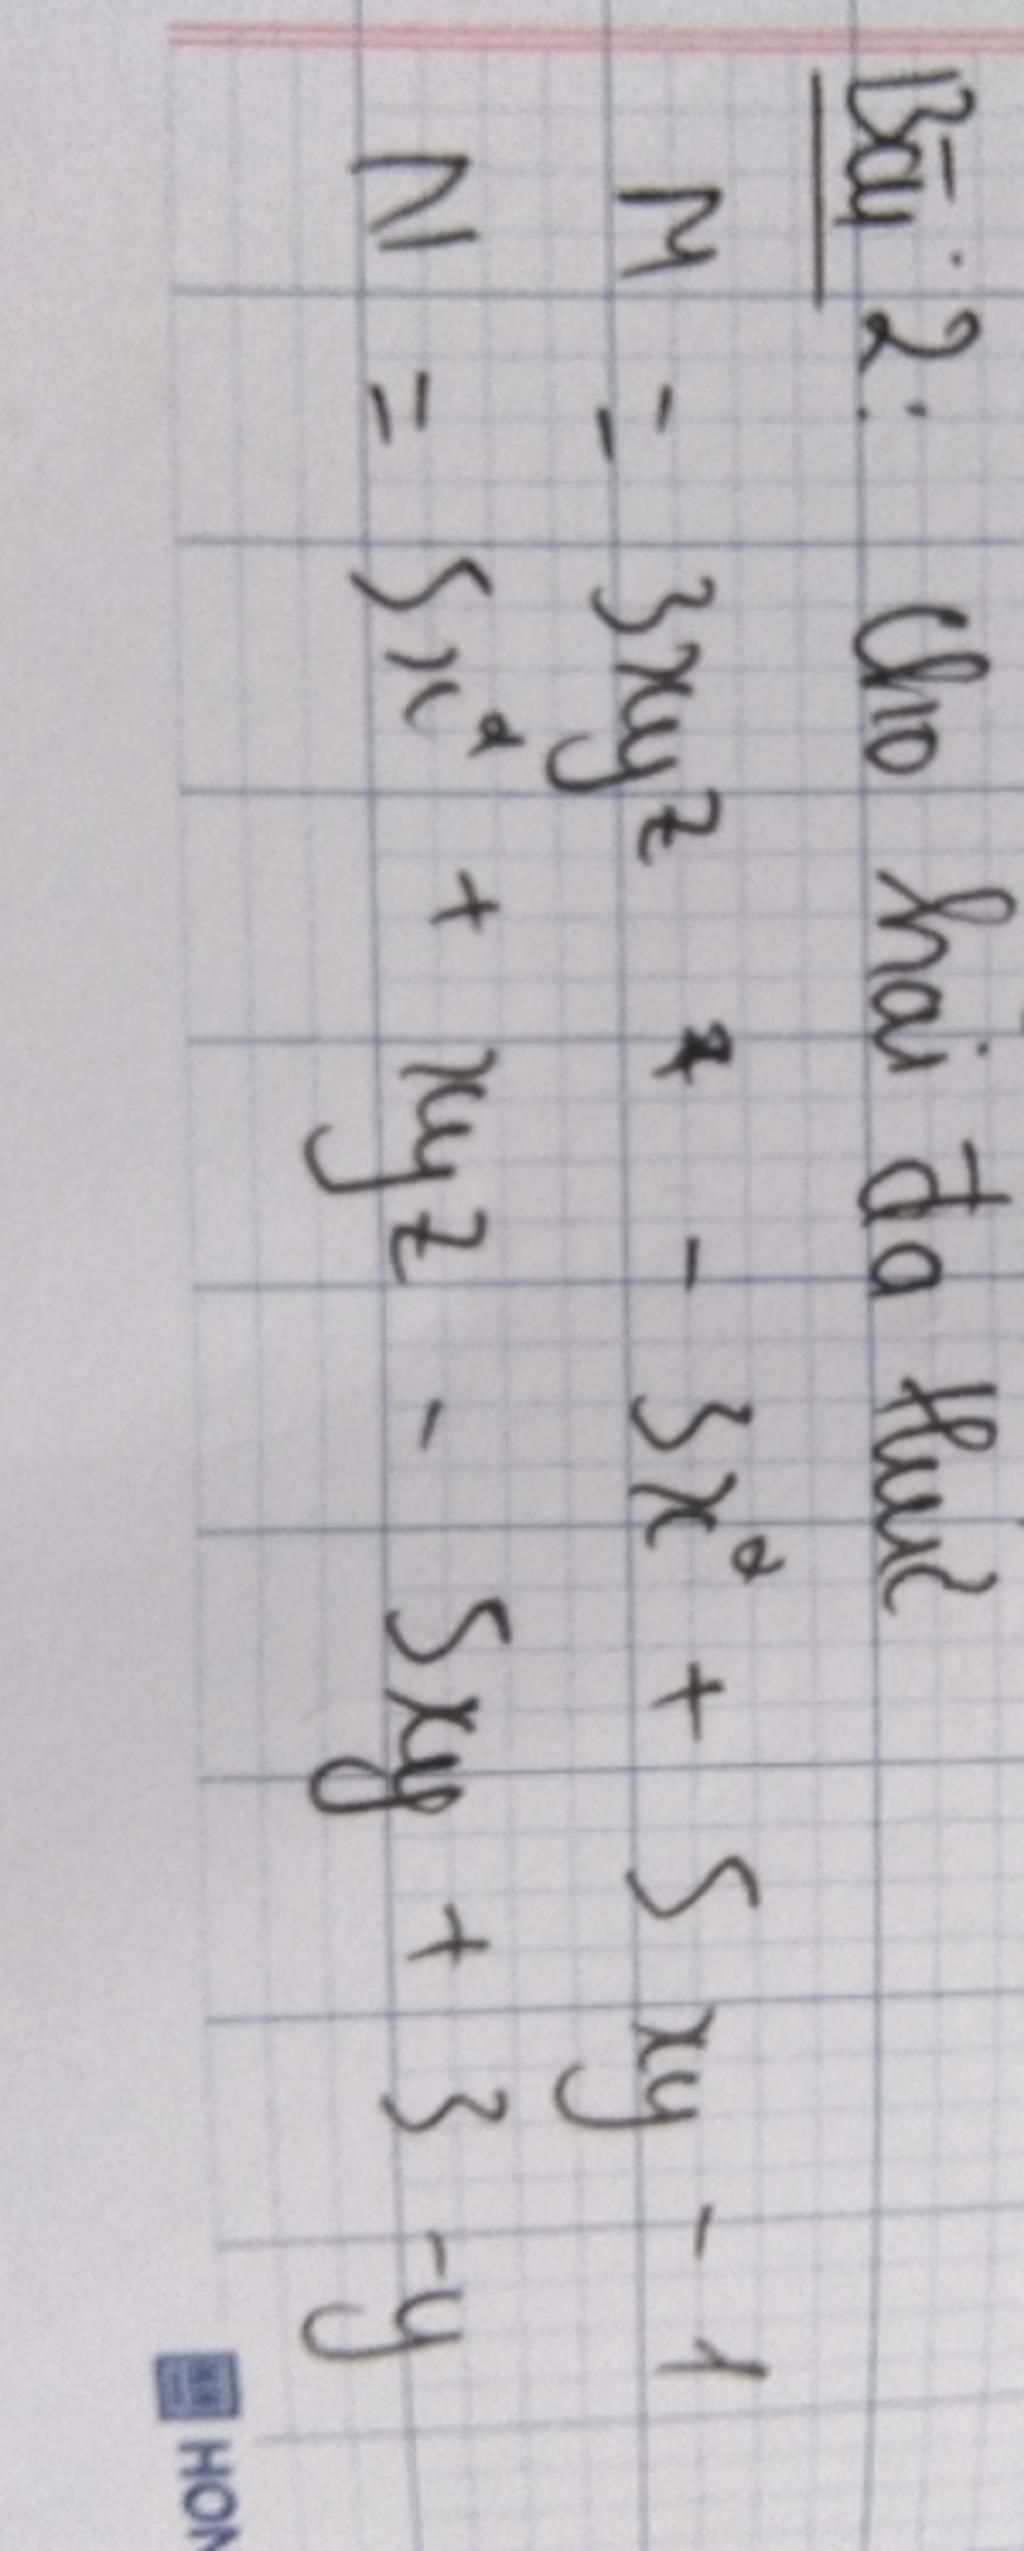 Bài 2: Cho hai đa thức
M = 3xyz - 3x² + 5xy - 1
N = 5x² + xyz - 5xy + 3 - y
HON